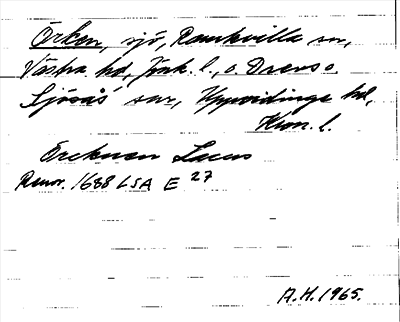 Örken, sjö, Ramkvilla sn,
Västra hd, Jönk. l., o. Drevs o.
Sjösås snr, Uppvidinge hd,
Kron. l.
Örcknen Lacus
Renov. 1688 LSA E 27
A.H. 1965.